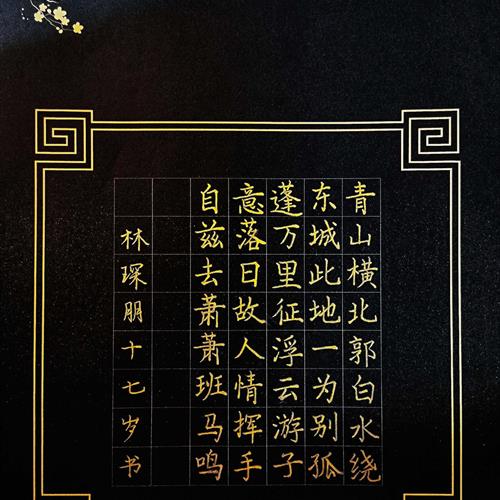 青山横北郭白水绕
东城此地一为别孤
蓬万里征浮云游子
意落日故人情挥手
自兹去萧萧班马鸣
林琛朋十七岁书